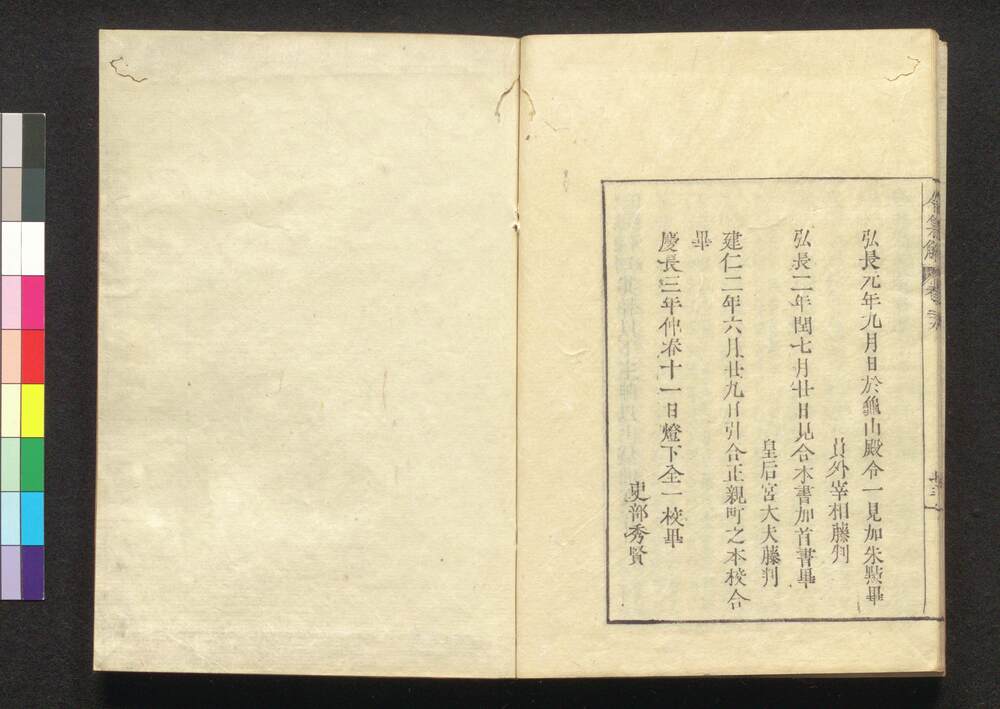 令集解 卷
弘長元年九月日於龜山殿令一見加朱㸃畢
員外宰相藤判
弘長二年閏七月廿日見合本書加首書畢
皇后宮大夫藤判
建仁二年六月廿九日引合正親町之本校合
畢
慶長三年仲春十一日燈下全一校畢
吏部秀賢